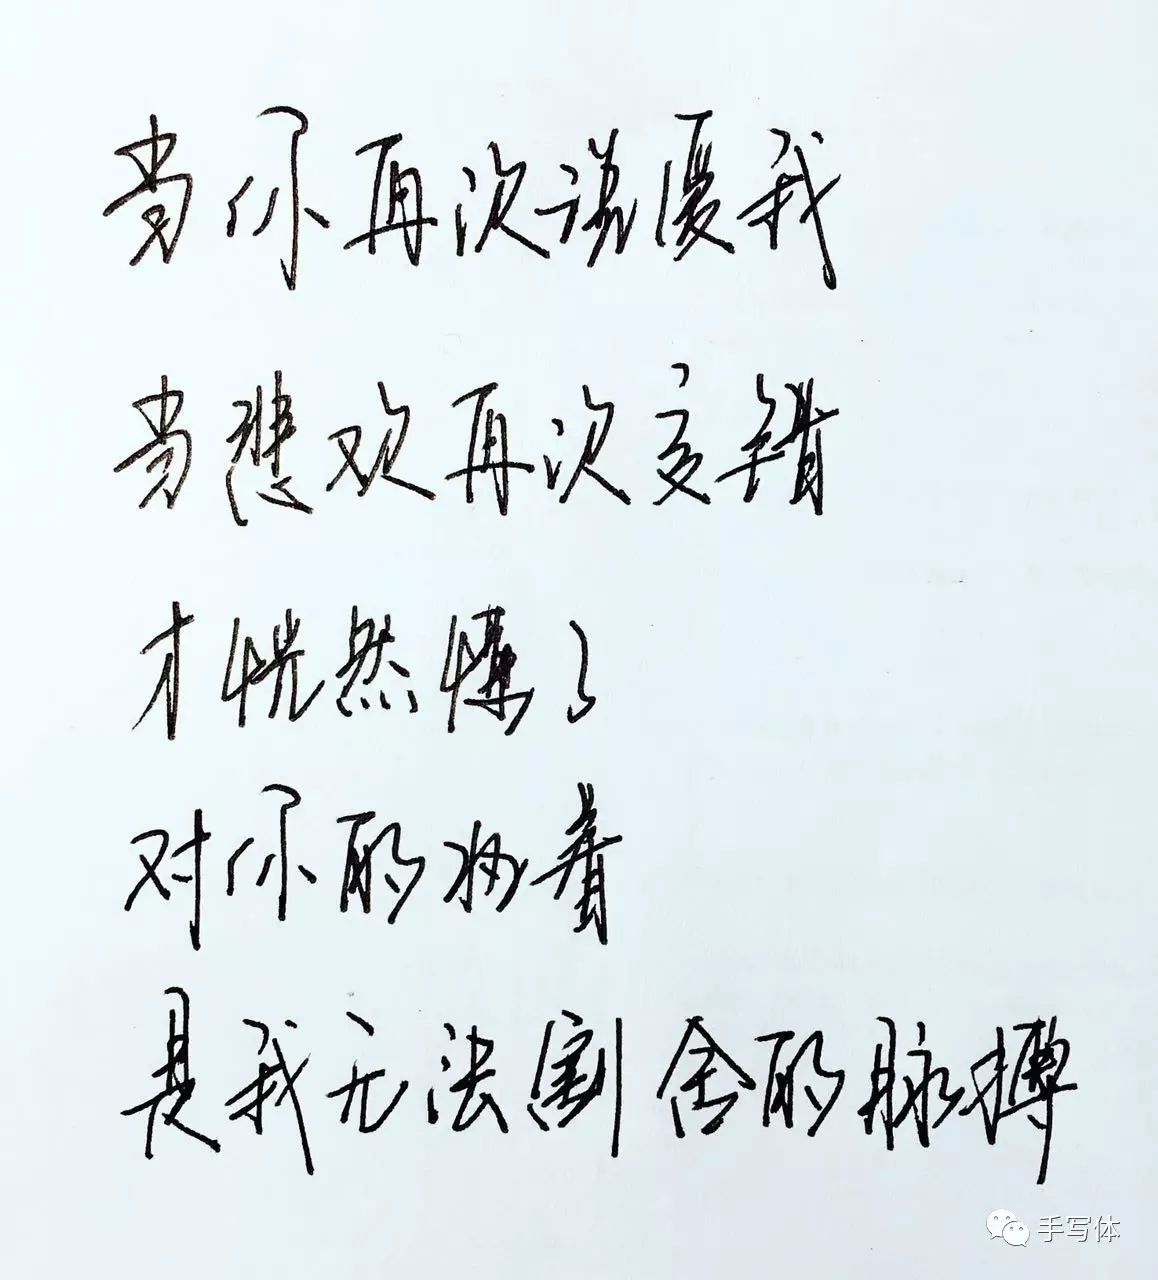 当你再次谦让我
当悲欢再次交错
才恍然懂了
对你的执着
是我无法割舍的脉搏
手写体